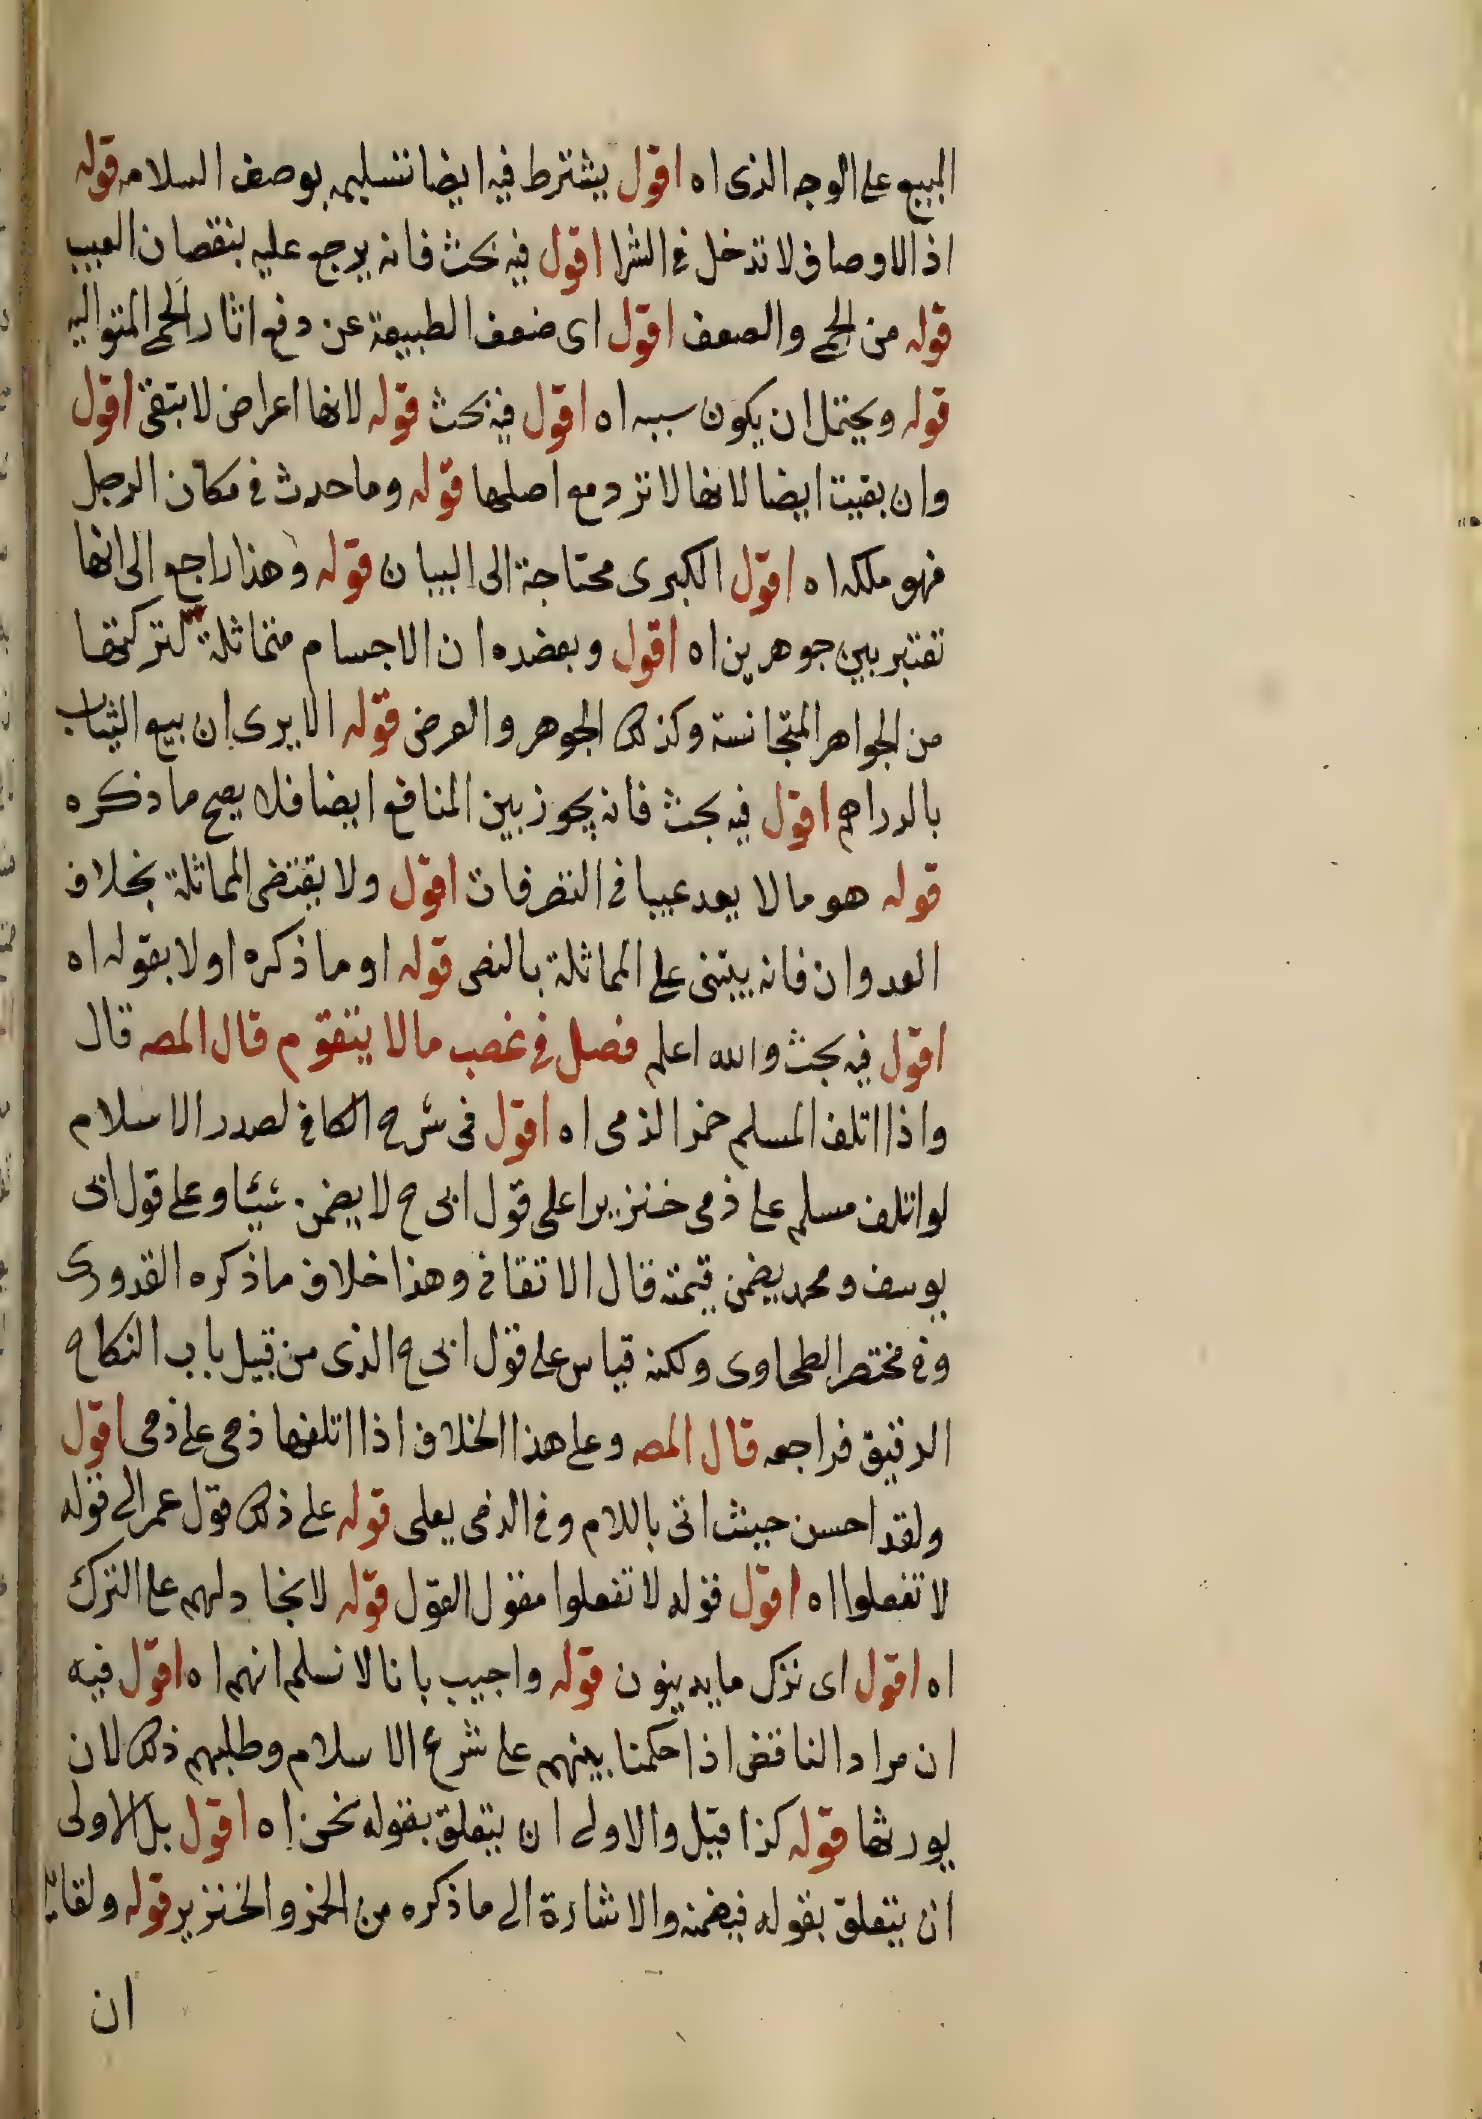 المبيع على الوجه الذى اه اقول يشترط فيه ايضا تسليمه بوصف السلامه قوله
اذ الاوصاف لا تدخل فى الشرا اقول فيه بحث فانه يرجع عليه بنقصان العيب
قوله من الحمى والضعف اقول اى ضعف الطبيعة عن دفع اثار الحمى المتواليه
قوله ويحتمل ان يكون سببه اه اقول فيه بحث قوله لانها اعراض لا تبقى اقول
وان بقيت ايضا لانها لا ترد مع اصلها قوله وما حدث فى مكان الرجل
فهو ملكه اه اقول الكبرى محتاجة الى البيان قوله وهذا راجع الى انها
تعتبر بين جوهرين اه اقول وبعضده ان الاجسام متماثلة لتركبها
من الجواهر المتجانسة وكذلك الجوهر والعرض قوله الا يرى ان بيع الثياب
بالدراهم اقول فيه بحث فانه يجوز بين المنافع ايضا فلا يصح ما ذكره
قوله هو ما لا يعد عيبا فى التصرفات اقول ولا يقتضى المماثلة بخلاف
العدوان فانه يبتنى على المماثلة بالنص قوله او ما ذكره اولا بقوله اه
اقول فيه بحث والله اعلم فصل فى غصب ما لا يتقوم قال المصه قال
واذا اتلف المسلم خمر الذمى اه اقول فى شرح الكافى لصدر الاسلام
لو اتلف مسلم على ذمى خنزيرا على قول ابى ح لا يضمن شيئا وعلى قول ابى
يوسف ومحمد يضمن قيمته قال الاتقانى وهذا خلاف ما ذكره القدورى
وفى مختصر الطحاوى ولكنه قياس على قول ابى ح الذى من قبيل باب النكاح
الرقيق فراجعه قال المصه وعلى هذا الخلاف اذا اتلفها ذمى على ذمى اقول
ولقد احسن حيث اتى باللام وفى الذمى يعلى قوله على ذلك قول عمر الى قوله
لا تفعلوا اه اقول قوله لا تفعلوا مقول القول قوله لا نجادلهم على الترك
اه اقول اى نترك ما يدينون قوله واجيب بانا لا نسلم انهم اه اقول فيه
ان مراد الناقض اذا حكمنا بينهم على شرع الاسلام وطلبهم ذلك لان
يورثها قوله كذا قيل والاولى ان يتعلق بقوله نحن اه اقول بل الاولى
ان يتعلق بقوله فيضمنه والاشارة الى ما ذكره من الخمر والخنزير قوله ولقائل
ان